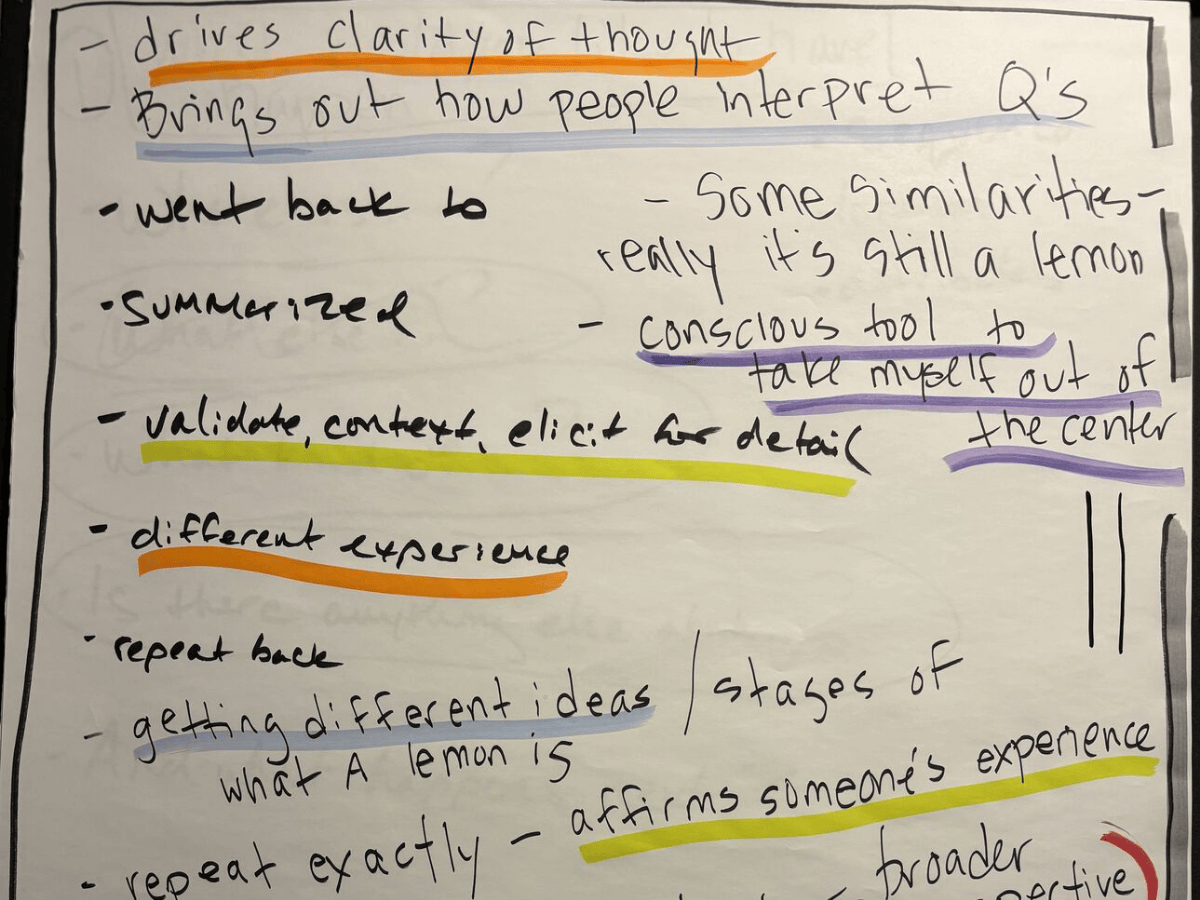 - drives clarity of thought
- Brings out how people interpret Q's
• went back to
- Some similarities -
really it's still a lemon
• summarized
- conscious tool to
take myself out of
the center
- validate, context, elicit for detail
- different experience
• repeat back
- getting different ideas / stages of
what A lemon is
• repeat exactly - affirms someone's experience
- broader